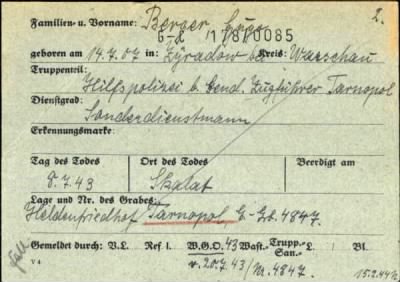 Familien- u. Vorname: Berger 2.
B-Z 1787 0085
geboren am 14.7.07 in: Zyradow bei Kreis: Warschau
Truppenteil:
Hilfspolizei b. Gend. Zugführer Tarnopol
Dienstgrad:
Sonderdienstmann
Erkennungsmarke:
Tag des Todes Ort des Todes Beerdigt am
8.7.43 Skalat
Lage und Nr. des Grabes:
Heldenfriedhof Tarnopol, E-Gb. 4847.
Gemeldet durch: V.L. Ref I. W.G.O. 43 Wast.- Trupp.- San.- L. Bl.
v. 20.7.43/Nr. 4847.
V 4 15.2.44